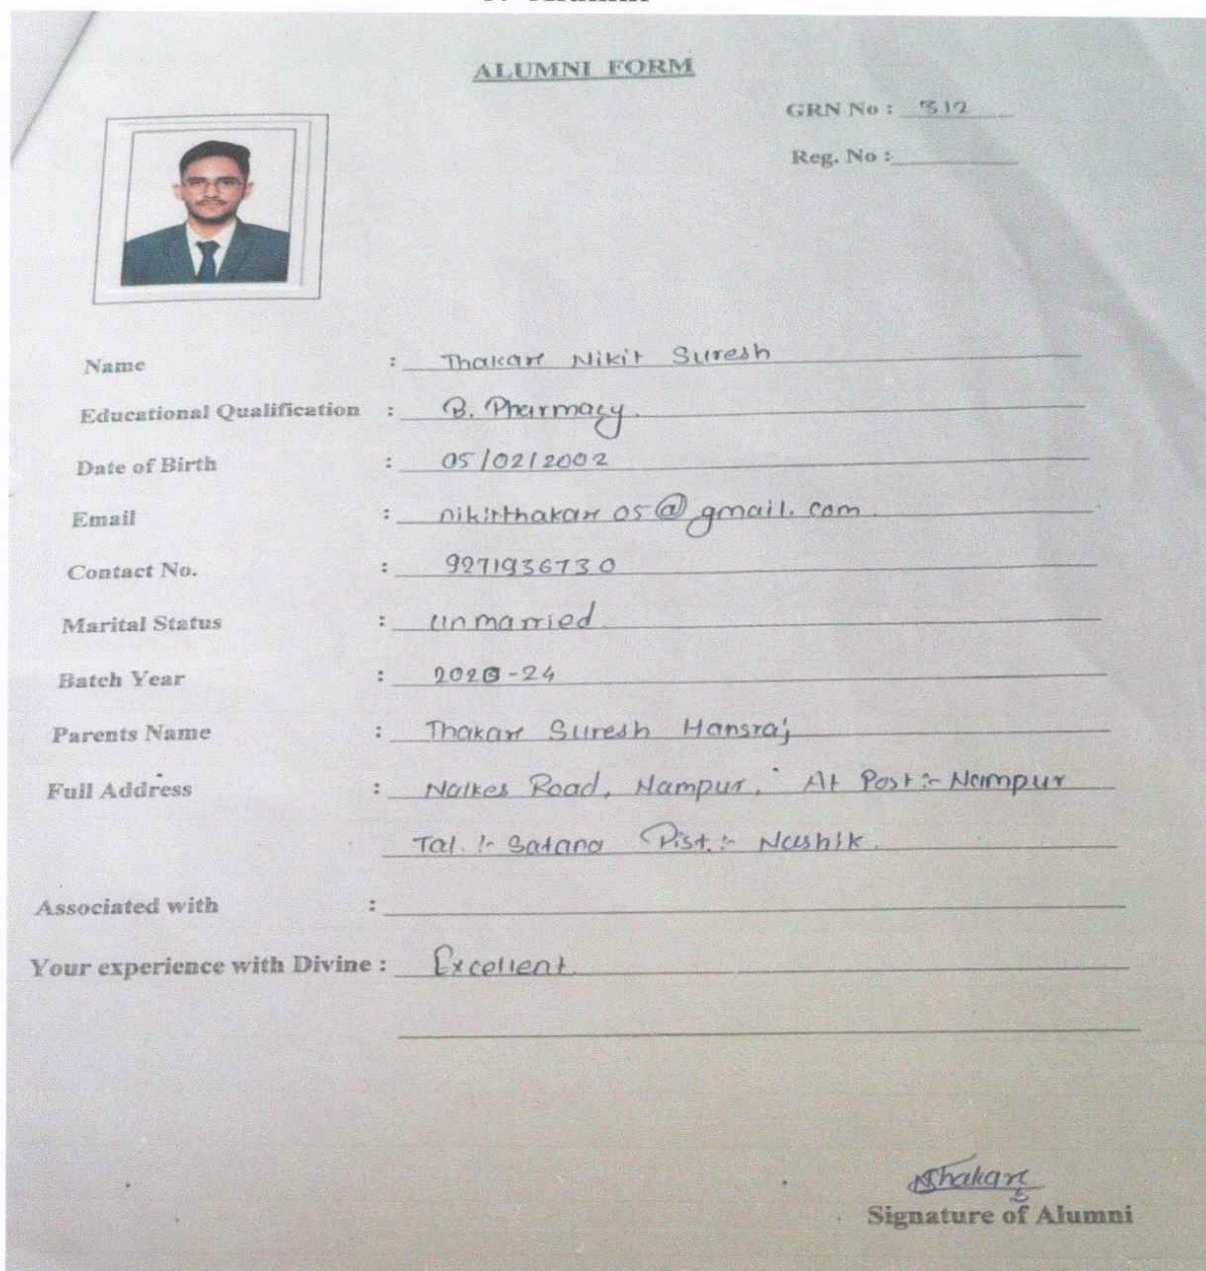 ALUMNI FORM
GRN No : 312
Reg. No :
Name : Thakare Nikit Suresh
Educational Qualification : B. Pharmacy.
Date of Birth : 05/02/2002
Email : nikitthakare05@gmail.com
Contact No. : 9271936730
Marital Status : unmarried
Batch Year : 2020-24
Parents Name : Thakare Suresh Hansraj
Full Address : Nalkes Road, Nampur, At Post:- Nampur
Tal. :- Satana Dist. :- Nashik.
Associated with :
Your experience with Divine : Excellent.
Thakare
Signature of Alumni